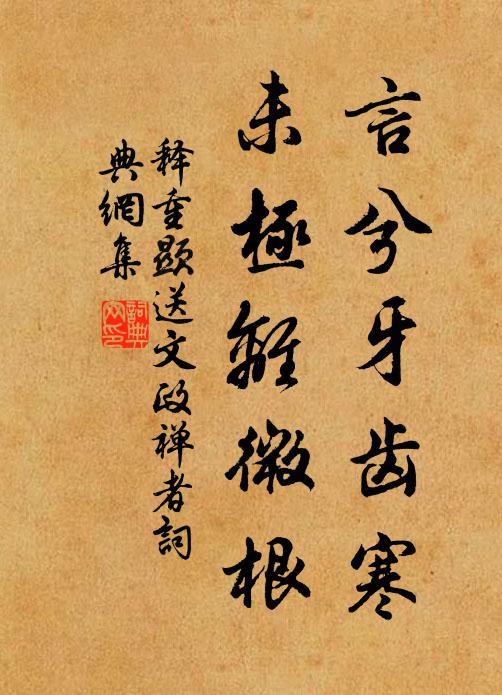 言兮牙齿寒
未極離微根
释重顯送文政禅者詞
典網集
詞典
网印